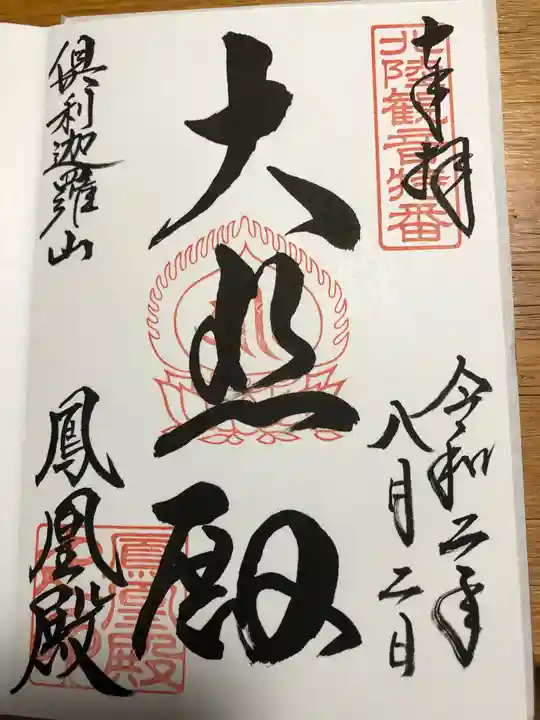 奉拝
北陸観音特番
令和二年
八月二日
大悲殿
倶利迦羅山
鳳凰殿
鳳凰殿